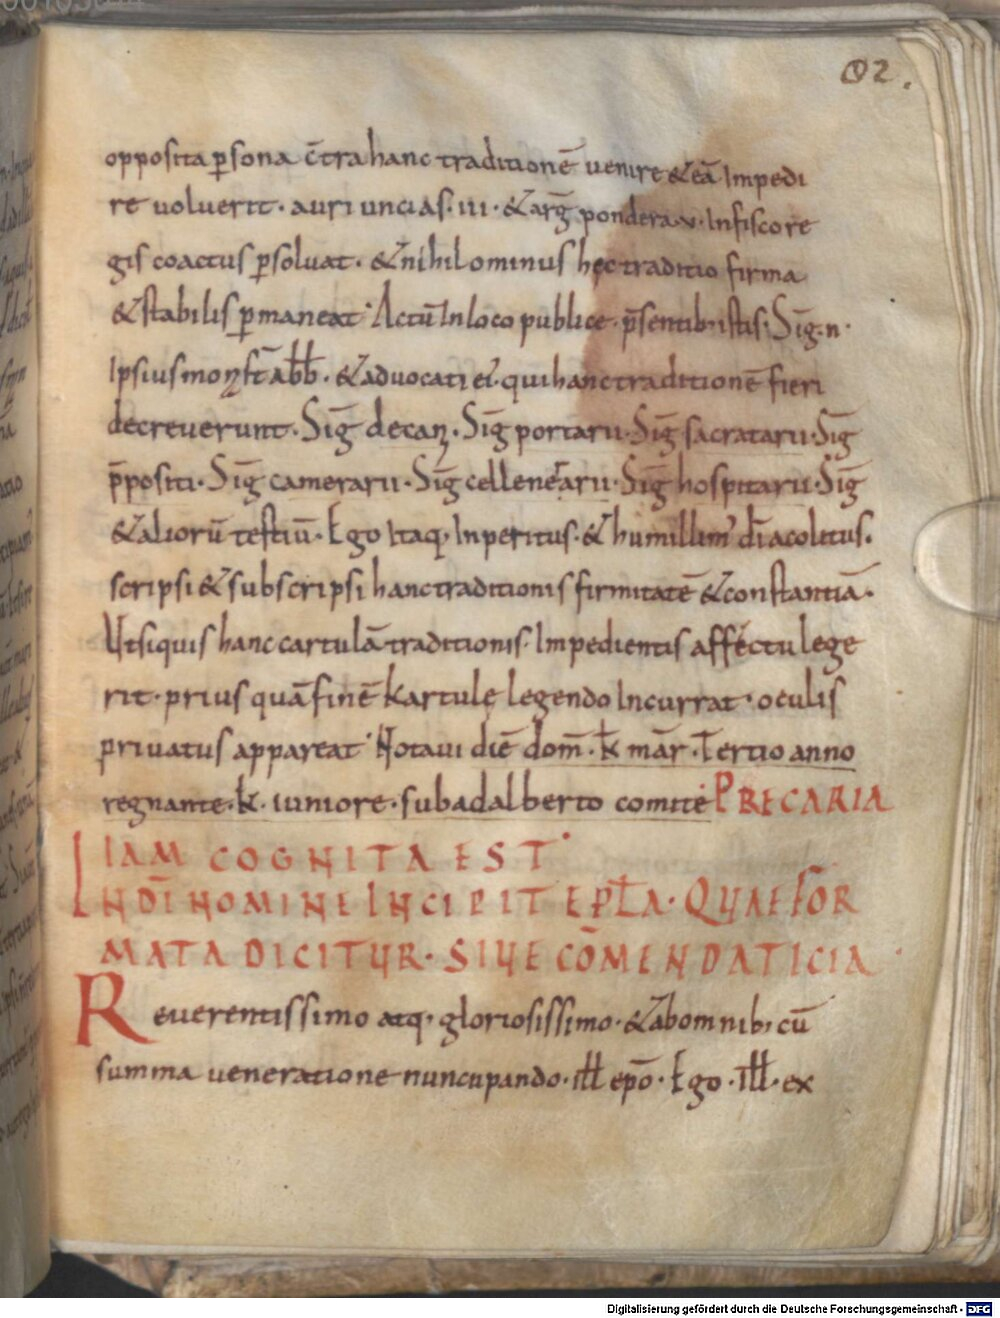 92.
opposita ꝑsona c̄tra hanc traditionē venire & eā Impedi
re uoluerit · auri uncias · iii · & arḡ pondera · v · In fisco re
gis coactus ꝑsoluat · & nihilominus hęc traditio firma
& stabilis ꝑmaneat · Actū In loco publice · p̄sentib · istis · Siḡ · n ·
Ipsius moꝶ abb · & aduocati ei · qui hanc traditionē fieri
decreuerunt · Siḡ decaꝶ · Siḡ portarii · Siḡ sacratarii · Siḡ
p̄positi · Siḡ camerarii · Siḡ cellenearii · Siḡ hospitarii · Siḡ
& aliorū testiū · Ego Itaq, Inperitus · & humillim' dī acolitus ·
scripsi & subscripsi hanc traditionis firmitatē & constantiā ·
Ut siquis hanc cartulā traditionis · Impedientis affectu lege
rit · prius quā finē kartulę legendo Incurrat · oculis
priuatus appareat · Notaui diē dom̄ · k̄ mār · Tertio anno
regnante · k · iuniore · sub adalberto comite PRECARIA
IAM COGNITA EST ·
IN DĪ NOMINE INCIPIT EPŁA · QUAE FOR
MATA DICITUR · SIUE CŌMENDATICIA ·
Reuerentissimo atq, gloriosissimo · & ab omnib, cū
summa ueneratione nuncupando · ill epō · Ego · Ill · ex
Digitalisierung gefördert durch die Deutsche Forschungsgemeinschaft - DFG